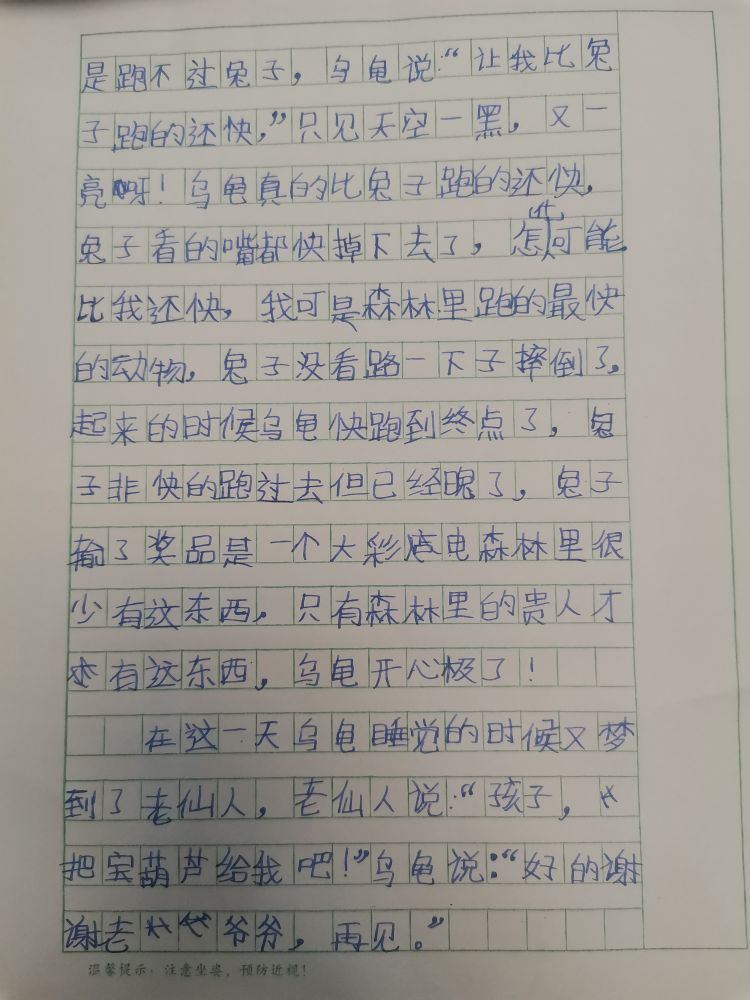 是跑不过兔子，乌龟说：“让我比兔
子跑的还快，”只见天空一黑，又一
亮呀！乌龟真的比兔子跑的还快，
兔子看的嘴都快掉下去了，怎可能
比我还快，我可是森林里跑的最快
的动物，兔子没看路一下子摔倒了，
起来的时候乌龟快跑到终点了，兔
子非快的跑过去但已经晚了，兔子
输了奖品是一个大彩电森林里很
少有这东西，只有森林里的贵人才
有这东西，乌龟开心极了！
在这一天乌龟睡觉的时候又梦
到了老仙人，老仙人说：“孩子，
把宝葫芦给我吧！”乌龟说：“好的谢
谢老爷爷，再见。”
温馨提示：注意坐姿，预防近视！